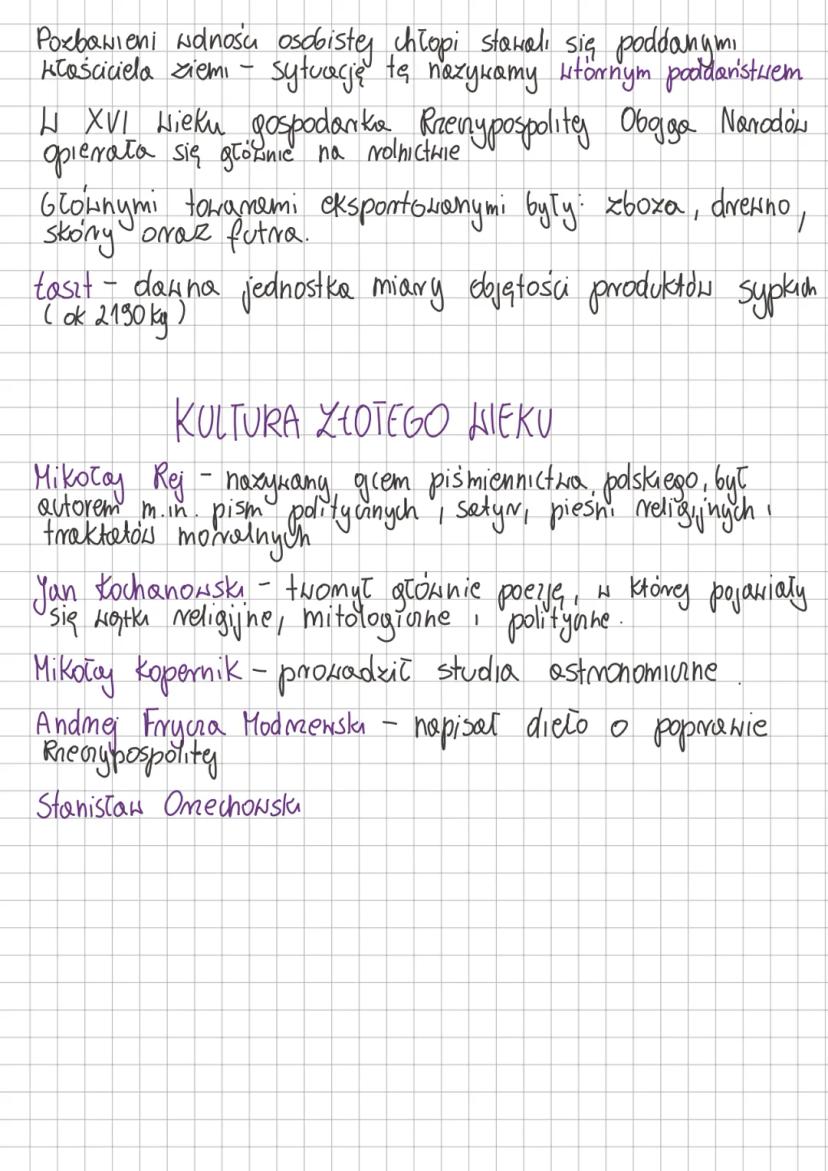 Pozbawieni wolności osobistej chłopi stawali się poddanymi
właściciela ziemi – sytuację tę nazywamy wtórnym poddaństwem
W XVI wieku gospodarka Rzeczypospolitej Obojga Narodów
opierała się głównie na rolnictwie
Głównymi towarami eksportowanymi były: zboża, drewno,
skóry oraz futra.
Łaszt – dawna jednostka miary objętości produktów sypkich
(ok 2190 kg)
KULTURA ZŁOTEGO WIEKU
Mikołaj Rej – nazywany ojcem piśmiennictwa polskiego, był
autorem m.in. pism politycznych, satyr, pieśni religijnych i
traktatów moralnych
Jan Kochanowski – tworzył głównie poezję, w której pojawiały
się wątki religijne, mitologiczne i polityczne.
Mikołaj Kopernik – prowadził studia astronomiczne.
Andrzej Frycza Modrzewski – napisał dzieło o poprawie
Rzeczypospolitej
Stanisław Orzechowski